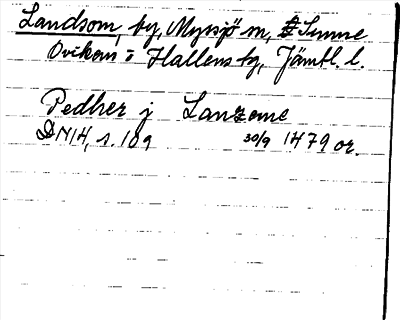 Landsom, by, Myssjö sn, Sunne
Ovikens i Hallens tg, Jämtl. l.
Pedher j Lanzeme
DN 14, s. 109 30/9 1479 or.